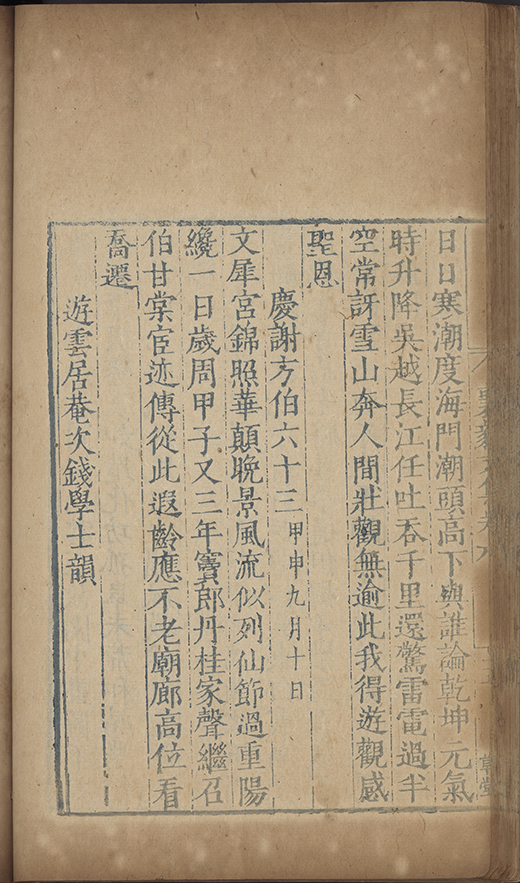 日日寒潮度海門潮頭高下與誰論乾坤元氣
時升降吳越長江任吐吞千里還驚雷電過半
空常訝雪山奔人間壯觀無逾此我得遊觀感
聖恩
慶謝方伯六十三甲申九月十日
文犀宮錦照華顛晚景風流似列仙節過重陽
纔一日歲周甲子又三年竇郎丹桂家聲繼召
伯甘棠宦迹傳從此遐齡應不老廟廊高位看
喬遷
遊雲居菴次錢學士韻